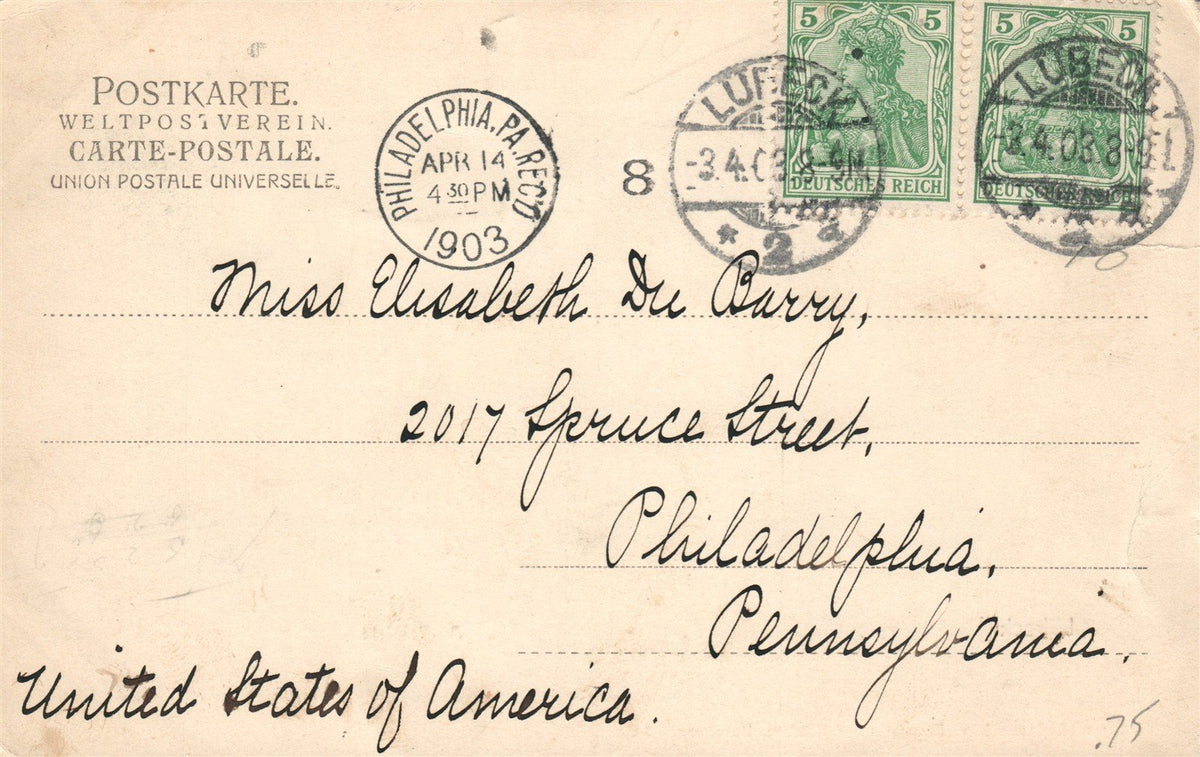 POSTKARTE.
WELTPOSTVEREIN.
CARTE-POSTALE.
UNION POSTALE UNIVERSELLE.
PHILADELPHIA, PA. REC'D
APR 14
4 30 PM
1903
8
5 5
DEUTSCHES REICH
5 5
DEUTSCHES REICH
LÜBECK
-3.4.03 8-9N
* 2 d
LÜBECK.
-3.4.03 8-9
Miss Elisabeth Du Barry,
2017 Spruce Street,
Philadelphia,
Pennsylvania.
United States of America.
.75